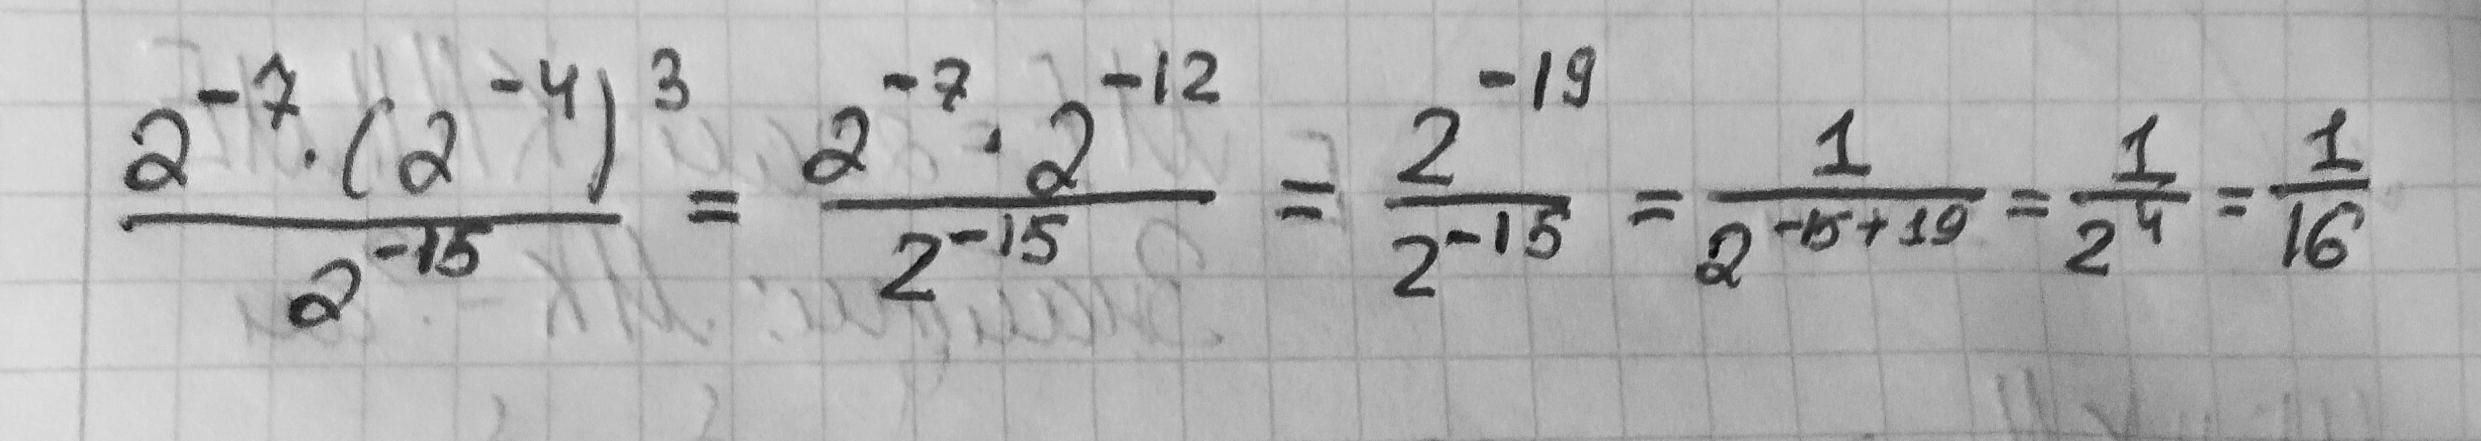 \frac{2^{-7} \cdot (2^{-4})^3}{2^{-15}} = \frac{2^{-7} \cdot 2^{-12}}{2^{-15}} = \frac{2^{-19}}{2^{-15}} = \frac{1}{2^{-15+19}} = \frac{1}{2^4} = \frac{1}{16}